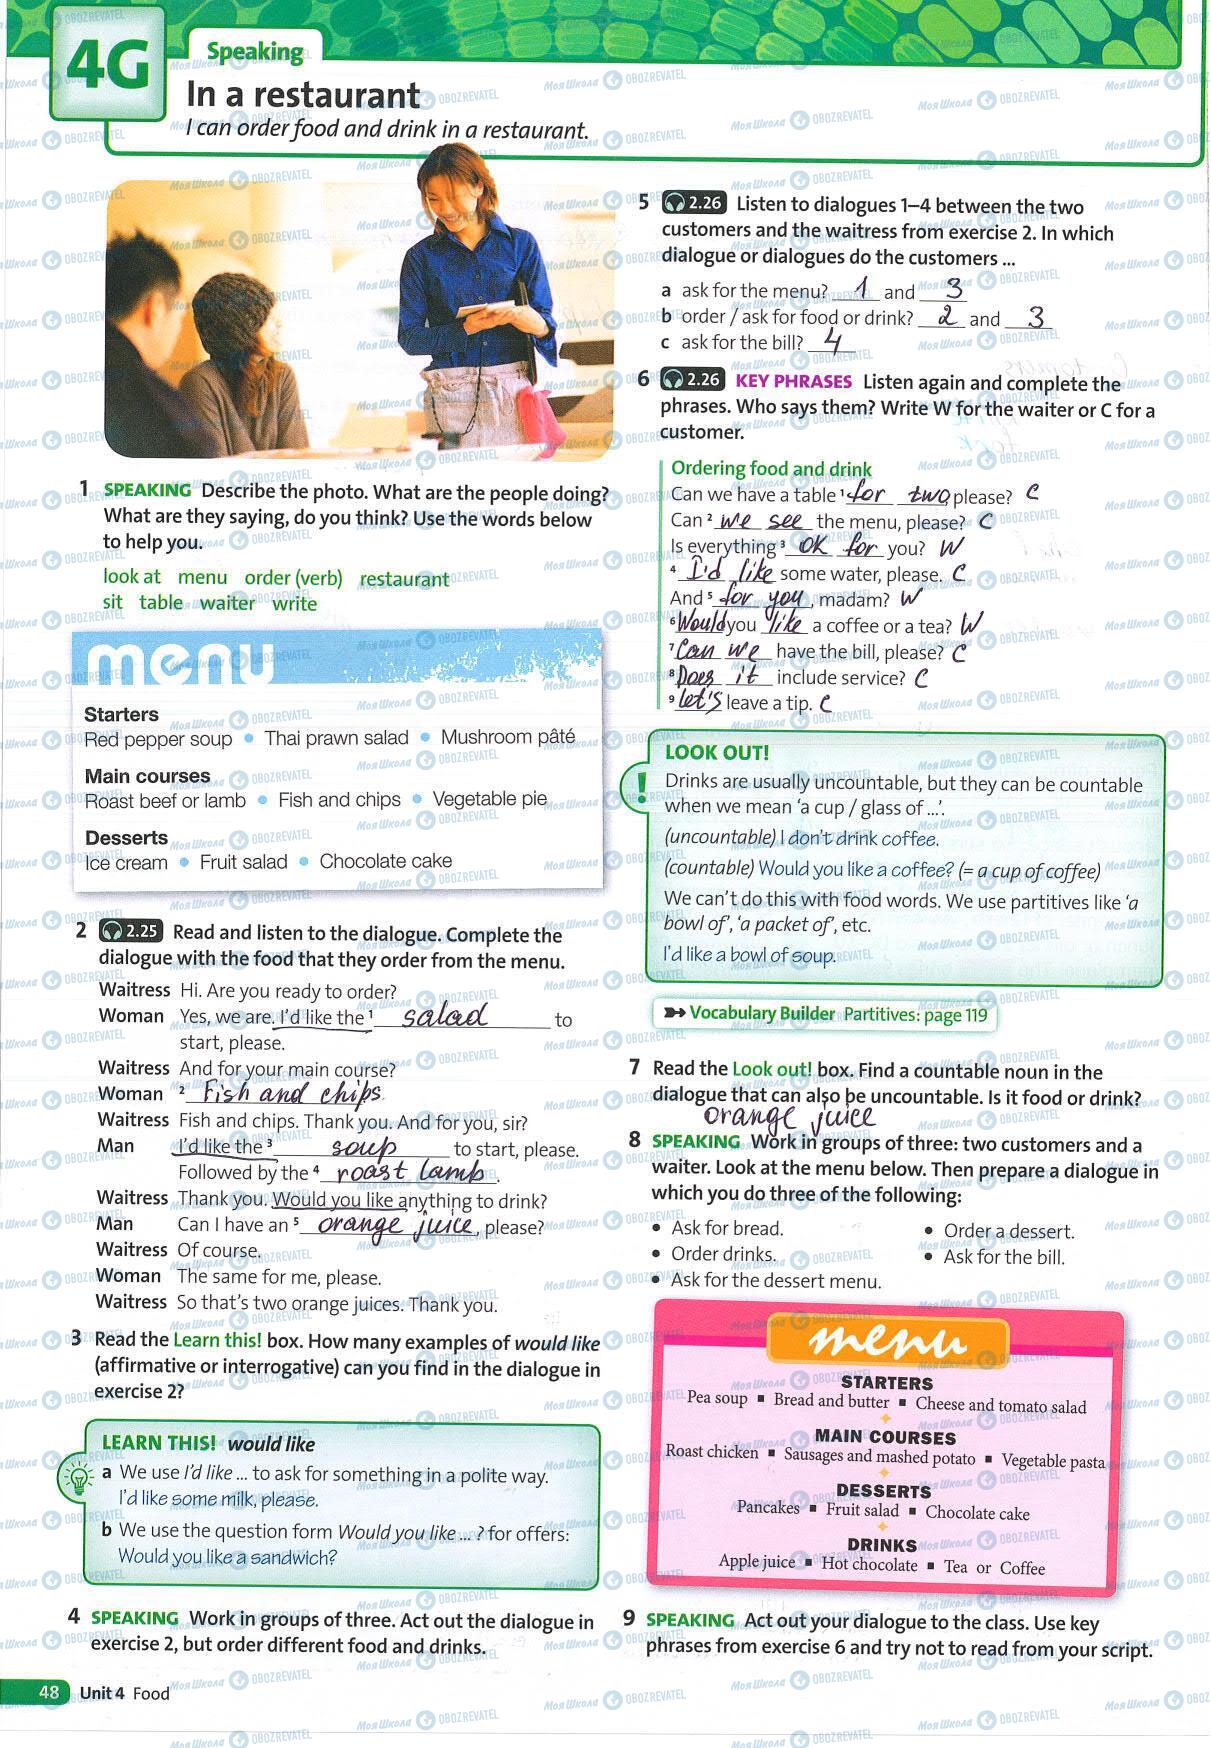 4G
Speaking
In a restaurant
I can order food and drink in a restaurant.
1 SPEAKING Describe the photo. What are the people doing?
What are they saying, do you think? Use the words below
to help you.
look at menu order (verb) restaurant
sit table waiter write
menu
Starters
Red pepper soup • Thai prawn salad • Mushroom pâté
Main courses
Roast beef or lamb • Fish and chips • Vegetable pie
Desserts
Ice cream • Fruit salad • Chocolate cake
2 2.25 Read and listen to the dialogue. Complete the
dialogue with the food that they order from the menu.
Waitress Hi. Are you ready to order?
Woman Yes, we are. I'd like the 1 salad to
start, please.
Waitress And for your main course?
Woman 2 Fish and chips.
Waitress Fish and chips. Thank you. And for you, sir?
Man I'd like the 3 soup to start, please.
Followed by the 4 roast lamb.
Waitress Thank you. Would you like anything to drink?
Man Can I have an 5 orange juice, please?
Waitress Of course.
Woman The same for me, please.
Waitress So that's two orange juices. Thank you.
3 Read the Learn this! box. How many examples of would like
(affirmative or interrogative) can you find in the dialogue in
exercise 2?
LEARN THIS! would like
a We use I'd like ... to ask for something in a polite way.
I'd like some milk, please.
b We use the question form Would you like ... ? for offers:
Would you like a sandwich?
4 SPEAKING Work in groups of three. Act out the dialogue in
exercise 2, but order different food and drinks.
48 Unit 4 Food
5 2.26 Listen to dialogues 1–4 between the two
customers and the waitress from exercise 2. In which
dialogue or dialogues do the customers ...
a ask for the menu? 1 and 3
b order / ask for food or drink? 2 and 3
c ask for the bill? 4
6 2.26 KEY PHRASES Listen again and complete the
phrases. Who says them? Write W for the waiter or C for a
customer.
Ordering food and drink
Can we have a table 1 for two, please? C
Can 2 we see the menu, please? C
Is everything 3 OK for you? W
4 I'd like some water, please. C
And 5 for you, madam? W
6 Would you like a coffee or a tea? W
7 Can we have the bill, please? C
8 Does it include service? C
9 let's leave a tip. C
LOOK OUT!
! Drinks are usually uncountable, but they can be countable
when we mean 'a cup / glass of ...'.
(uncountable) I don't drink coffee.
(countable) Would you like a coffee? (= a cup of coffee)
We can't do this with food words. We use partitives like 'a
bowl of', 'a packet of', etc.
I'd like a bowl of soup.
Vocabulary Builder Partitives: page 119
7 Read the Look out! box. Find a countable noun in the
dialogue that can also be uncountable. Is it food or drink?
orange juice
8 SPEAKING Work in groups of three: two customers and a
waiter. Look at the menu below. Then prepare a dialogue in
which you do three of the following:
• Ask for bread. • Order a dessert.
• Order drinks. • Ask for the bill.
• Ask for the dessert menu.
menu
STARTERS
Pea soup ▪ Bread and butter ▪ Cheese and tomato salad
MAIN COURSES
Roast chicken ▪ Sausages and mashed potato ▪ Vegetable pasta
DESSERTS
Pancakes ▪ Fruit salad ▪ Chocolate cake
DRINKS
Apple juice ▪ Hot chocolate ▪ Tea or Coffee
9 SPEAKING Act out your dialogue to the class. Use key
phrases from exercise 6 and try not to read from your script.
Моя Школа OBOZREVATEL